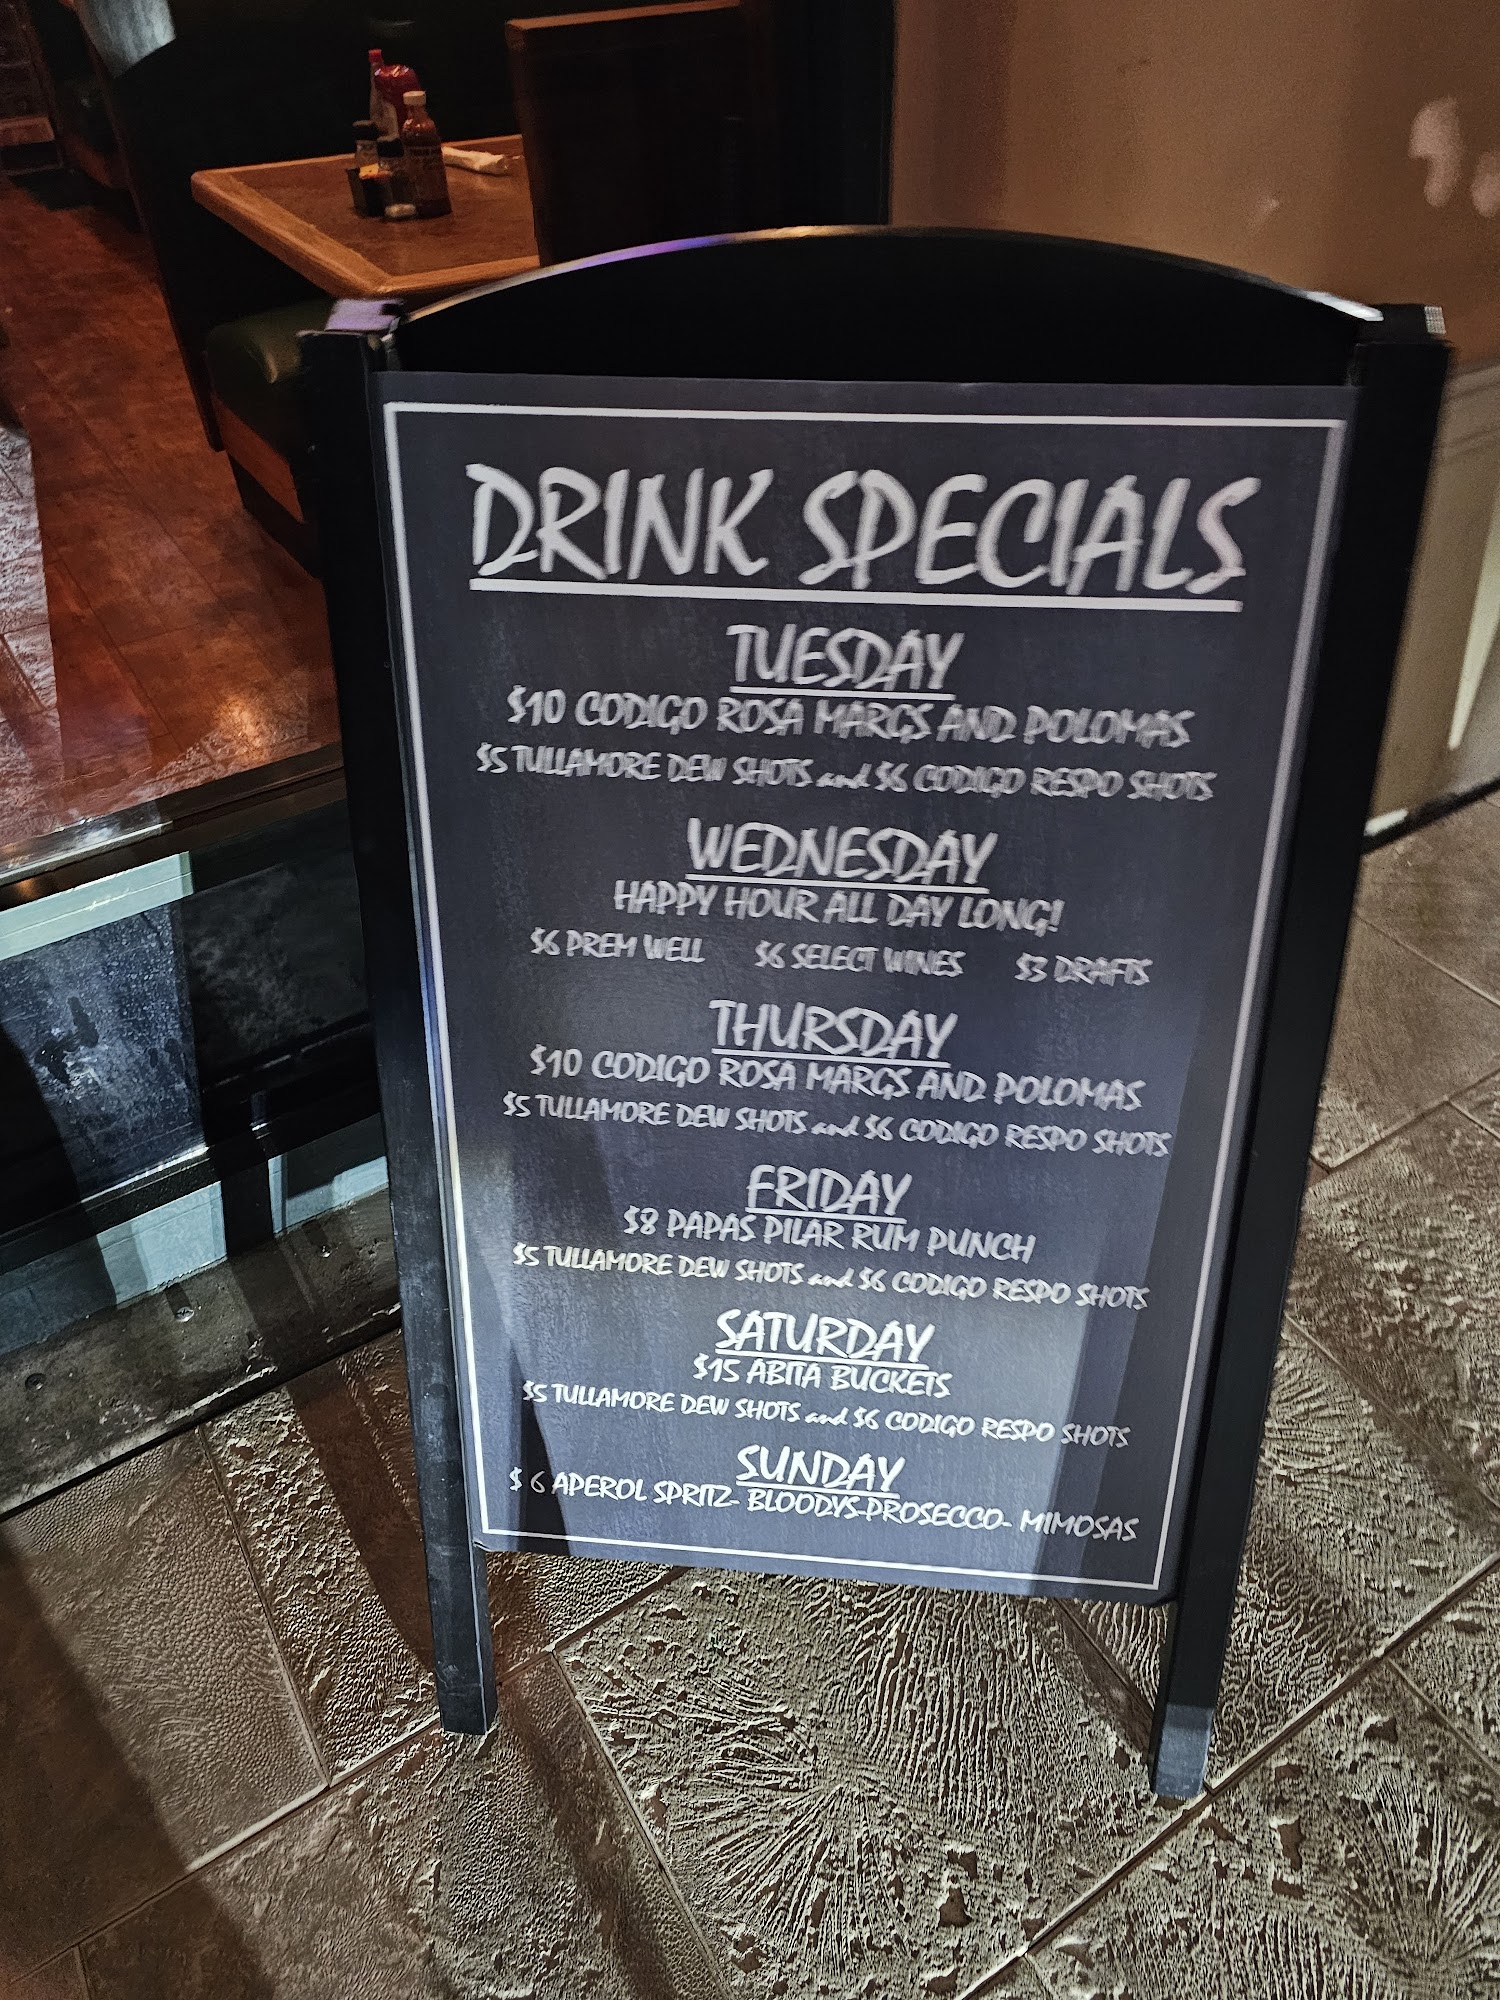 DRINK SPECIALS
TUESDAY
$10 CODIGO ROSA MARGS AND POLOMAS
$5 TULLAMORE DEW SHOTS and $6 CODIGO RESPO SHOTS
WEDNESDAY
HAPPY HOUR ALL DAY LONG!
$6 PREM WELL $6 SELECT WINES $3 DRAFTS
THURSDAY
$10 CODIGO ROSA MARGS AND POLOMAS
$5 TULLAMORE DEW SHOTS and $6 CODIGO RESPO SHOTS
FRIDAY
$8 PAPAS PILAR RUM PUNCH
$5 TULLAMORE DEW SHOTS and $6 CODIGO RESPO SHOTS
SATURDAY
$15 ABITA BUCKETS
$5 TULLAMORE DEW SHOTS and $6 CODIGO RESPO SHOTS
SUNDAY
$ 6 APEROL SPRITZ- BLOODYS-PROSECCO- MIMOSAS